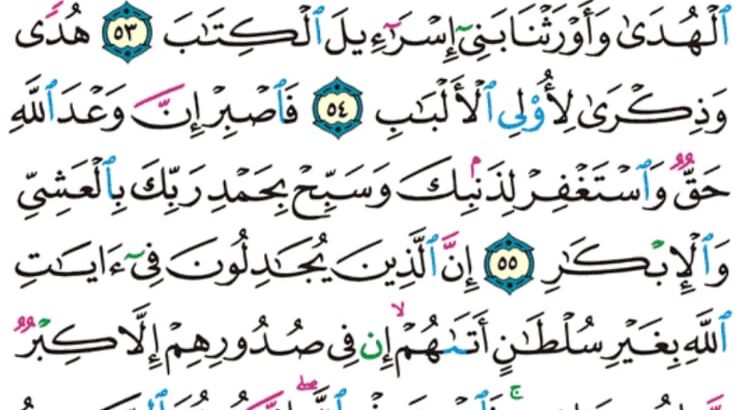 ٱلۡهُدَىٰ وَأَوۡرَثۡنَا بَنِيٓ إِسۡرَـٰٓءِيلَ ٱلۡكِتَٰبَ ٥٣ هُدٗى
وَذِكۡرَىٰ لِأُوْلِي ٱلۡأَلۡبَٰبِ ٥٤ فَٱصۡبِرۡ إِنَّ وَعۡدَ ٱللَّهِ
حَقّٞ وَٱسۡتَغۡفِرۡ لِذَنۢبِكَ وَسَبِّحۡ بِحَمۡدِ رَبِّكَ بِٱلۡعَشِيِّ
وَٱلۡإِبۡكَٰرِ ٥٥ إِنَّ ٱلَّذِينَ يُجَٰدِلُونَ فِيٓ ءَايَٰتِ
ٱللَّهِ بِغَيۡرِ سُلۡطَٰنٍ أَتَىٰهُمۡۙ إِن فِي صُدُورِهِمۡ إِلَّا كِبۡرٞ